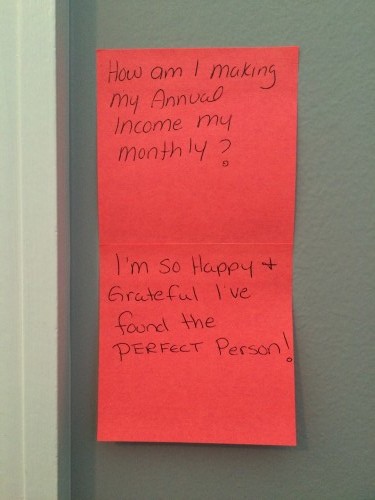 How am I making
my Annual
Income my
monthly?
I'm so Happy +
Grateful I've
found the
PERFECT Person!